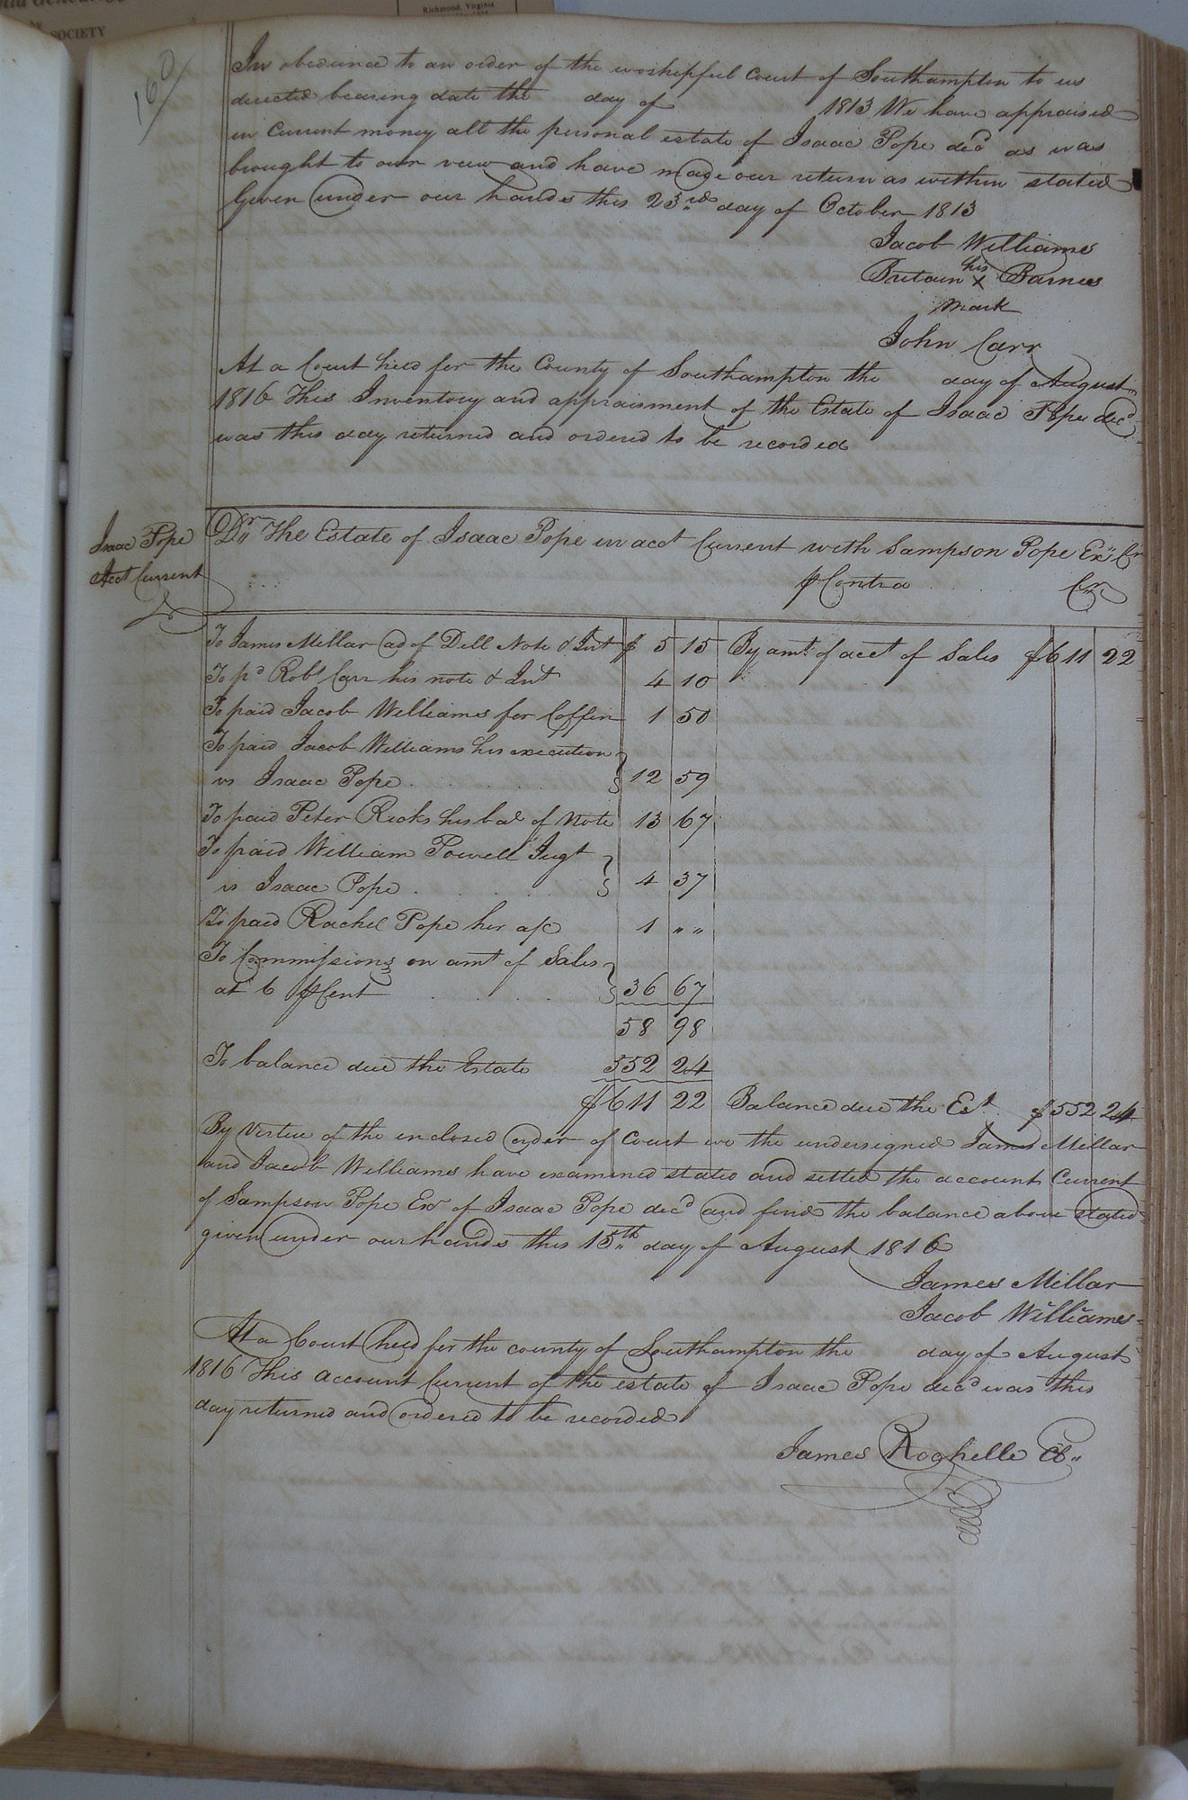 SOCIETY
Richmond, Virginia
160
In obedience to an order of the worshipful Court of Southampton to us
directed bearing date the day of 1813 We have appraised
in Current money all the personal estate of Isaac Pope decd as was
brought to our view and have made our return as within stated
Given under our hands this 23rd day of October 1813
Jacob Williams
Britain his x Barnes
mark
John Carr
At a Court held for the County of Southampton the day of August
1816 This Inventory and appraisment of the Estate of Isaac Pope decd
was this day returned and ordered to be recorded
Isaac Pope
Acct Current
Dr The Estate of Isaac Pope in acct Current with Sampson Pope Exr Cr
⅌ Contra Cr
To James Millar ad of Dell Note & Int $ 5 15 By amt. of acct of Sales $611 22
To pd Robt Carr his note & Int 4 10
To paid Jacob Williams for Coffin 1 50
To paid Jacob Williams his execution
vs Isaac Pope 12 59
To paid Peter Ricks his bal of Note 13 67
To paid William Powell Jugt
vs Isaac Pope 4 37
To paid Rachel Pope her a/c 1 " "
To Commissions on amt of Sales
at 6 ⅌ Cent 36 67
58 98
To balance due the Estate 552 24
$611 22 Balance due the Est. $552 24
By Virtue of the inclosed order of Court we the undersigned James Millar
and Jacob Williams have examined stated and settled the account Current
of Sampson Pope Exr of Isaac Pope decd and find the balance above stated
given under our hands this 15th day of August 1816
James Millar
Jacob Williams
At a Court held for the county of Southampton the day of August
1816 This account Current of the estate of Isaac Pope decd was this
day returned and ordered to be recorded
James Rochelle Ck